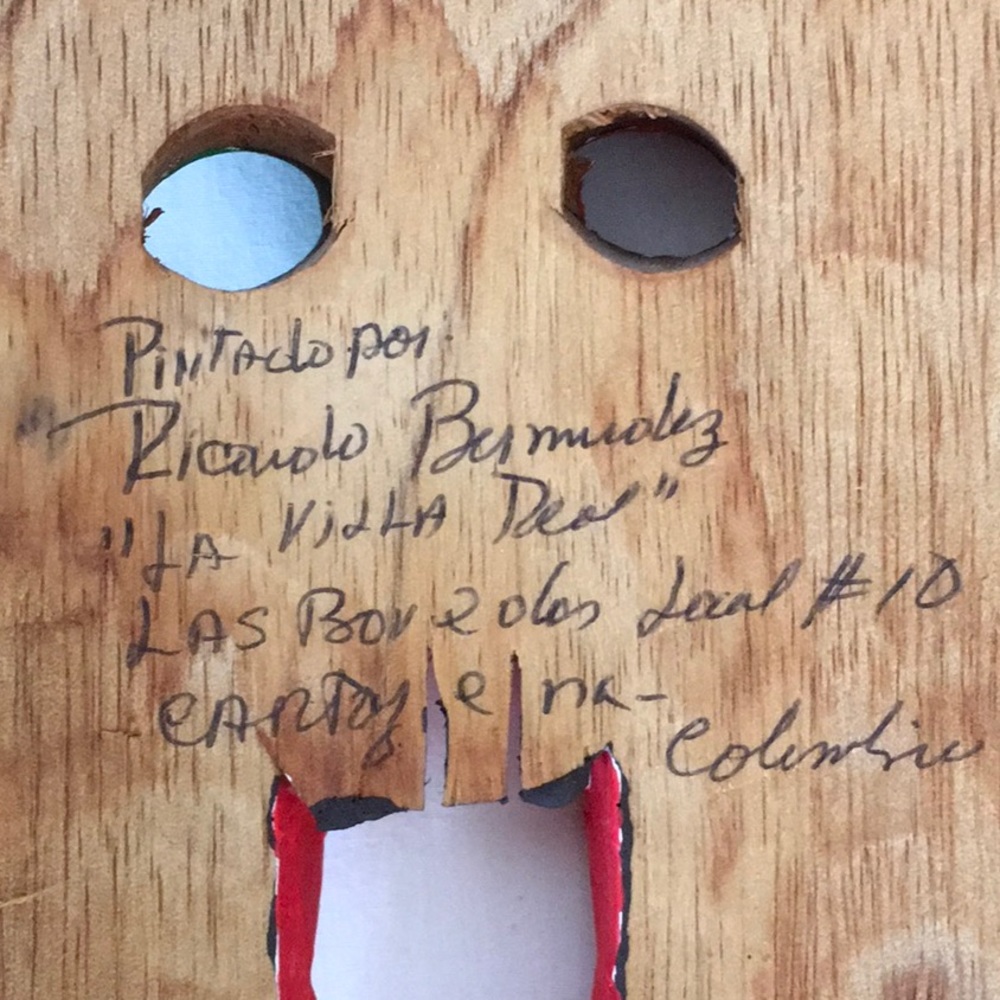 Pintado por:
Ricardo Bermudez
"LA ViLLA Real"
LAS Bovedas Local #10
CARTAgena - Colombia